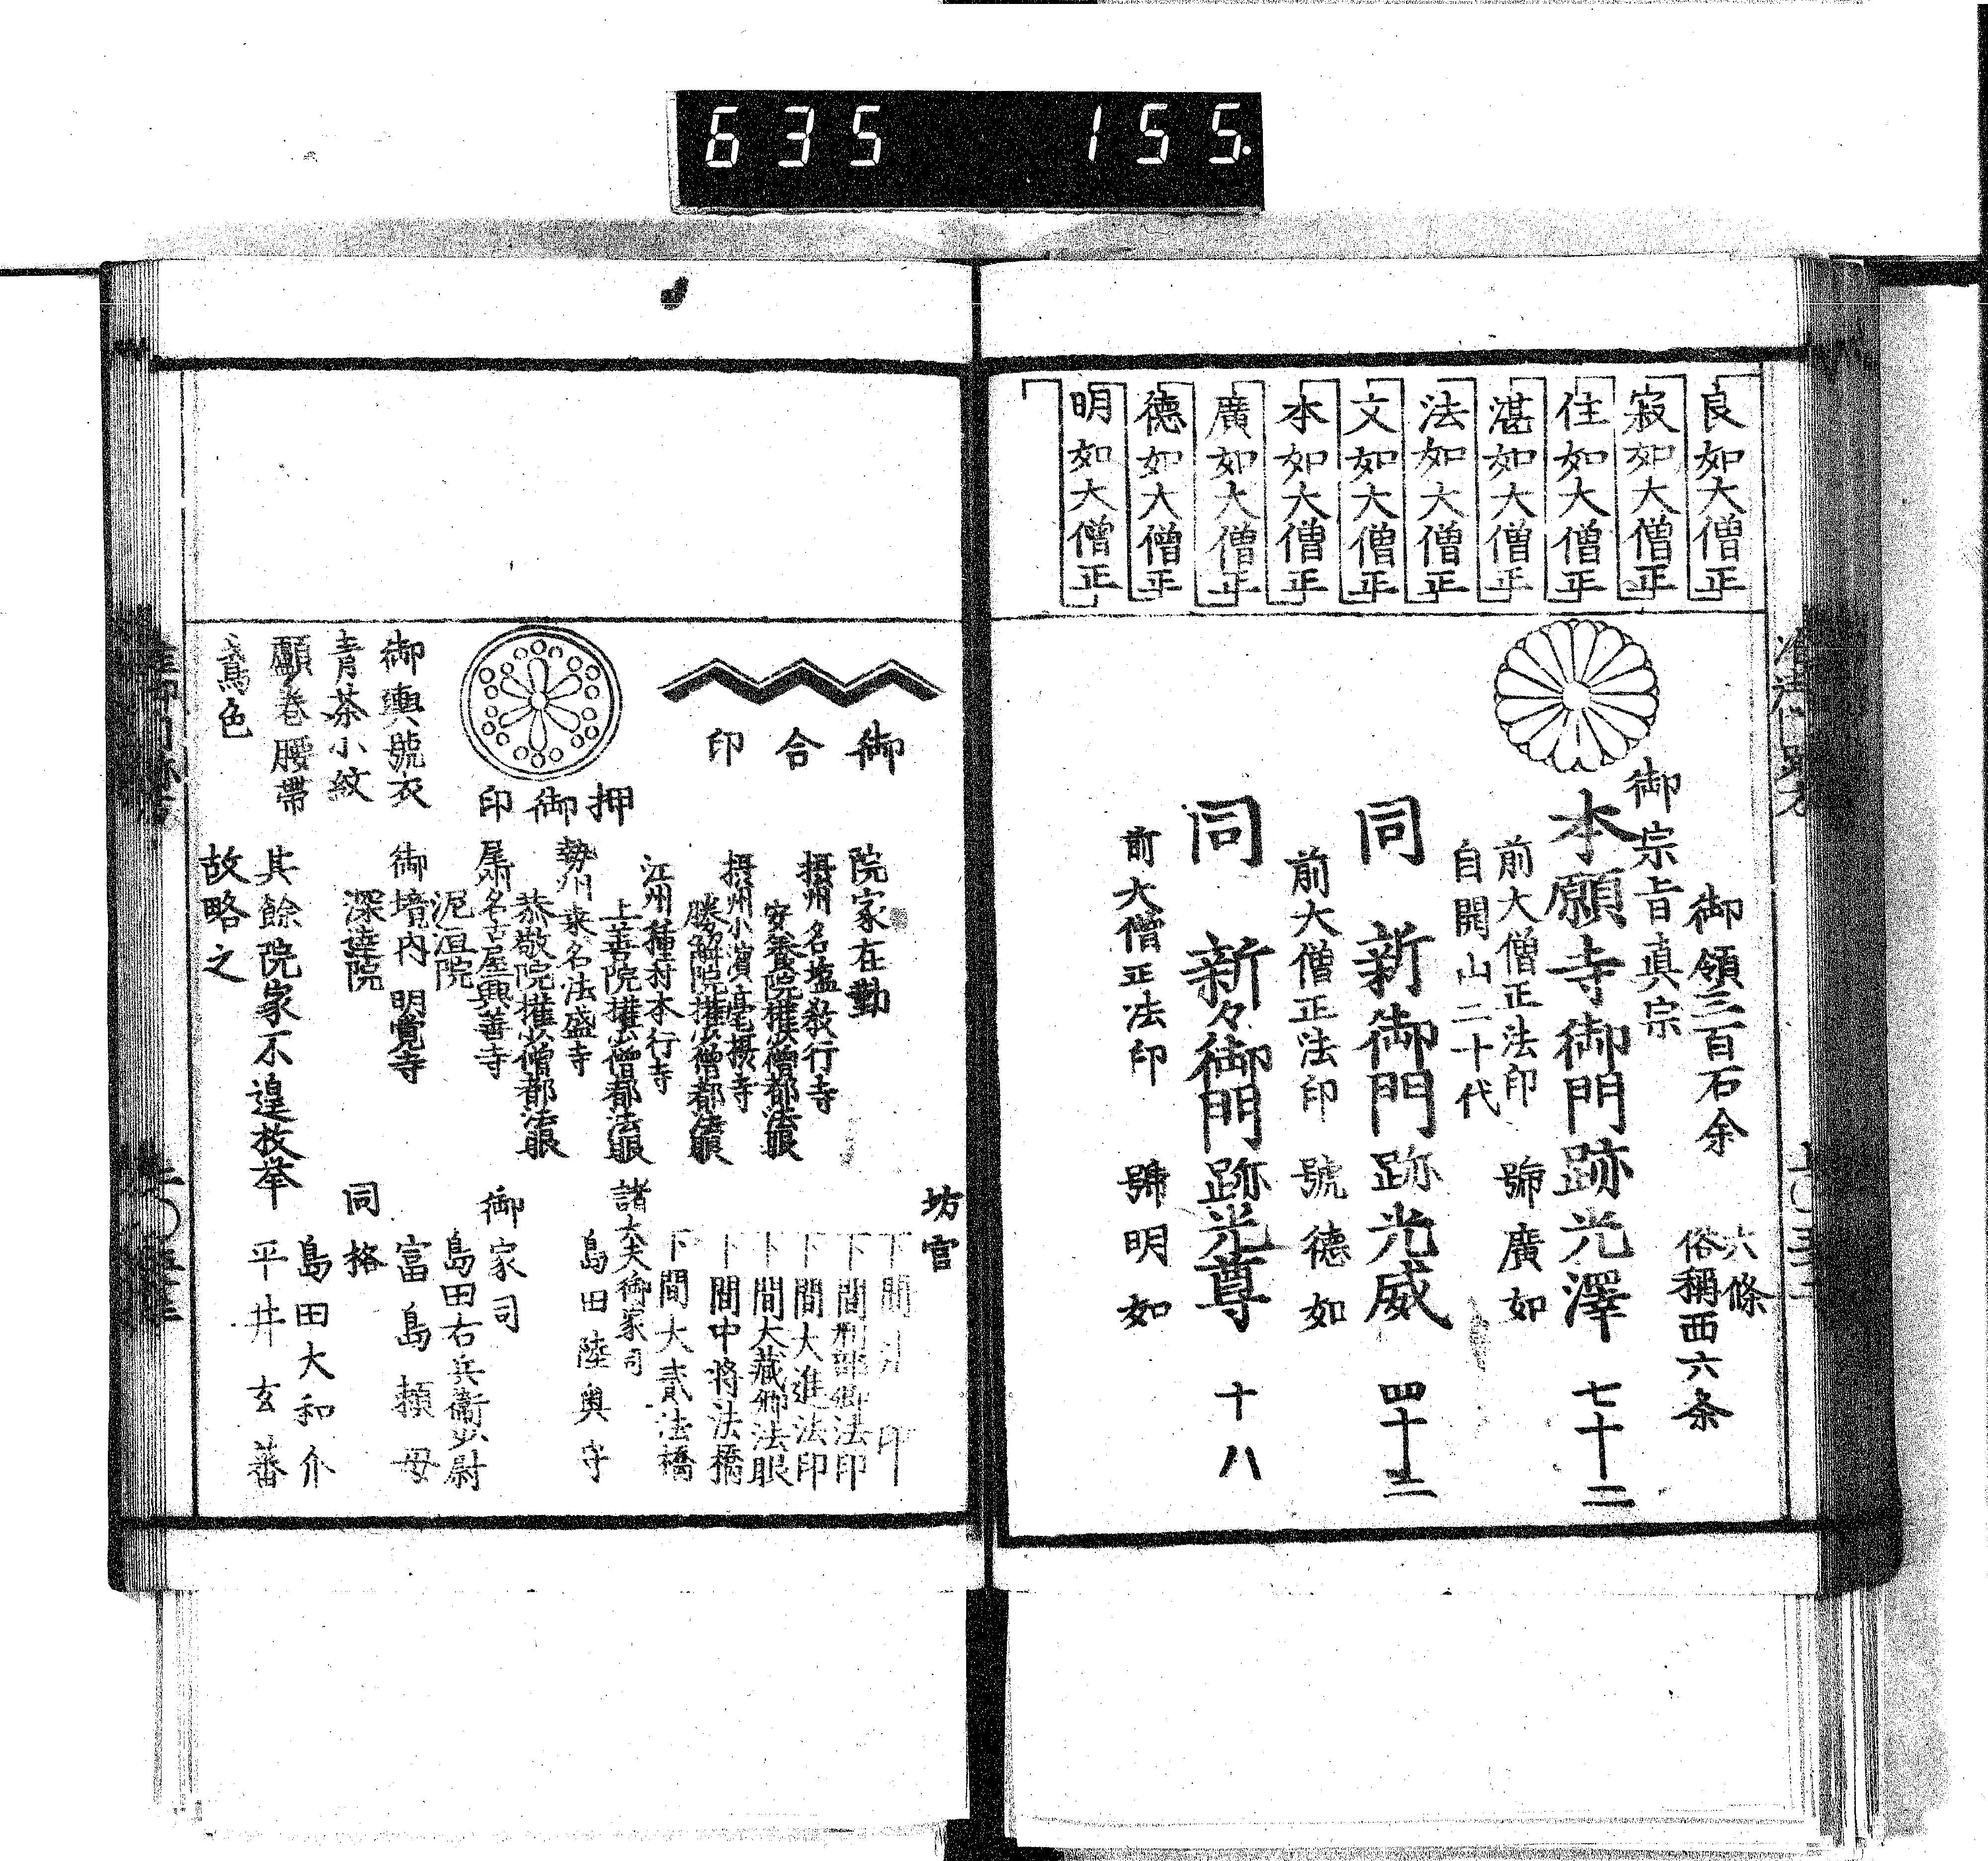 635 155.
良如大僧正
寂如大僧正
住如大僧正
湛如大僧正
法如大僧正
文如大僧正
本如大僧正
廣如大僧正
德如大僧正
明如大僧正
御領三百石余
六條
俗稱西六条
御宗旨真宗
本願寺御門跡光澤 七十二
前大僧正法印 號廣如
自開山二十代
同 新御門跡光威 四十二
前大僧正法印 號德如
同 新々御門跡光尊 十八
前大僧正法印 號明如
御合印
押御印
御輿號衣
青茶小紋
顱卷腰帶
鳶色
院家在勤
摂州名塩教行寺
安養院権少僧都法眼
摂州小濱毫摂寺
勝解院権少僧都法眼
江州種村本行寺
上善院権少僧都法眼
勢州桒名法盛寺
恭敬院権少僧都法眼
尾州名古屋興善寺
泥洹院
御境内 明覺寺
深達院
其餘院家不遑枚挙
故略之
坊官
下間 法印
下間刑部卿法印
下間大進法印
下間大藏卿法眼
下間中将法橋
下間大貳法橋
諸大夫御家司
島田陸奥守
御家司
島田右兵衞少尉
富島頼母
同格
島田大和介
平井玄蕃